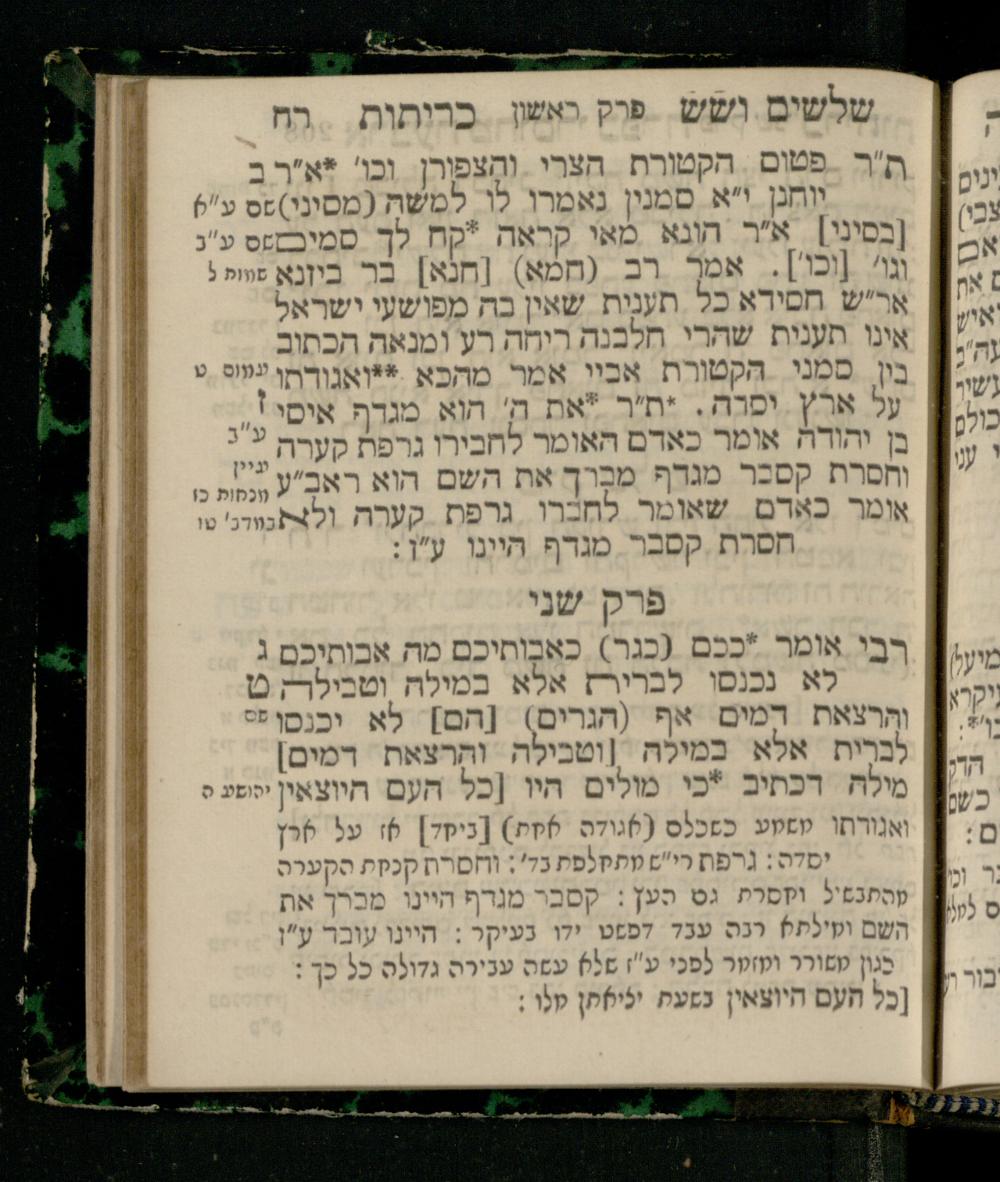 שלשים וששׁ פרק ראשון כריתות רח
ת"ר פטום הקטורת הצרי והצפורן וכו' *א"ר ב
יוחנן י"א סמנין נאמרו לו למשה (מסיני) שם ע"א
[בסיני] א"ר הונא מאי קראה *קח לך סמים שם ע"ב
וגו' [וכו']. אמר רב (חמא) [חנא] בר ביזנא שמות ל
אר"ש חסידא כל תענית שאין בה מפושעי ישראל
אינו תענית שהרי חלבנה ריחה רע ומנאה הכתוב
בין סמני הקטורת אביי אמר מהכא **ואגודתו עמוס ט
על ארץ יסדה. *ת"ר *את ה' הוא מגדף איסי ז
בן יהודה אומר כאדם האומר לחבירו גרפת קערה ע"ב
וחסרת קסבר מגדף מברך את השם הוא ראב"ע עיין מנחות כו
אומר כאדם שאומר לחברו גרפת קערה ולא במדב' טו
חסרת קסבר מגדף היינו ע"ז:
פרק שני
רבי אומר *ככם (כגר) כאבותיכם מה אבותיכם ג
לא נכנסו לברית אלא במילה וטבילה ט
והרצאת דמים אף (הגרים) [הם] לא יכנסו שם
לברית אלא במילה [וטבילה והרצאת דמים]
מילה דכתיב *כי מולים היו [כל העם היוצאין יהושע ה
ואגודתו משמע כשכלם (אגודה אחת) [ביחד] אז על ארץ
יסדה: גרפת רי"ש מתחלפת בד': וחסרת קנחת הקערה
מהתבשיל וחסרת גם העץ: קסבר מגדף היינו מברך את
השם ומילתא רבה עבד דפשט ידו בעיקר: היינו עובד ע"ז
כגון משורר ומזמר לפני ע"ז שלא עשה עבירה גדולה כל כך:
[כל העם היוצאין בשעת יציאתן מלו: